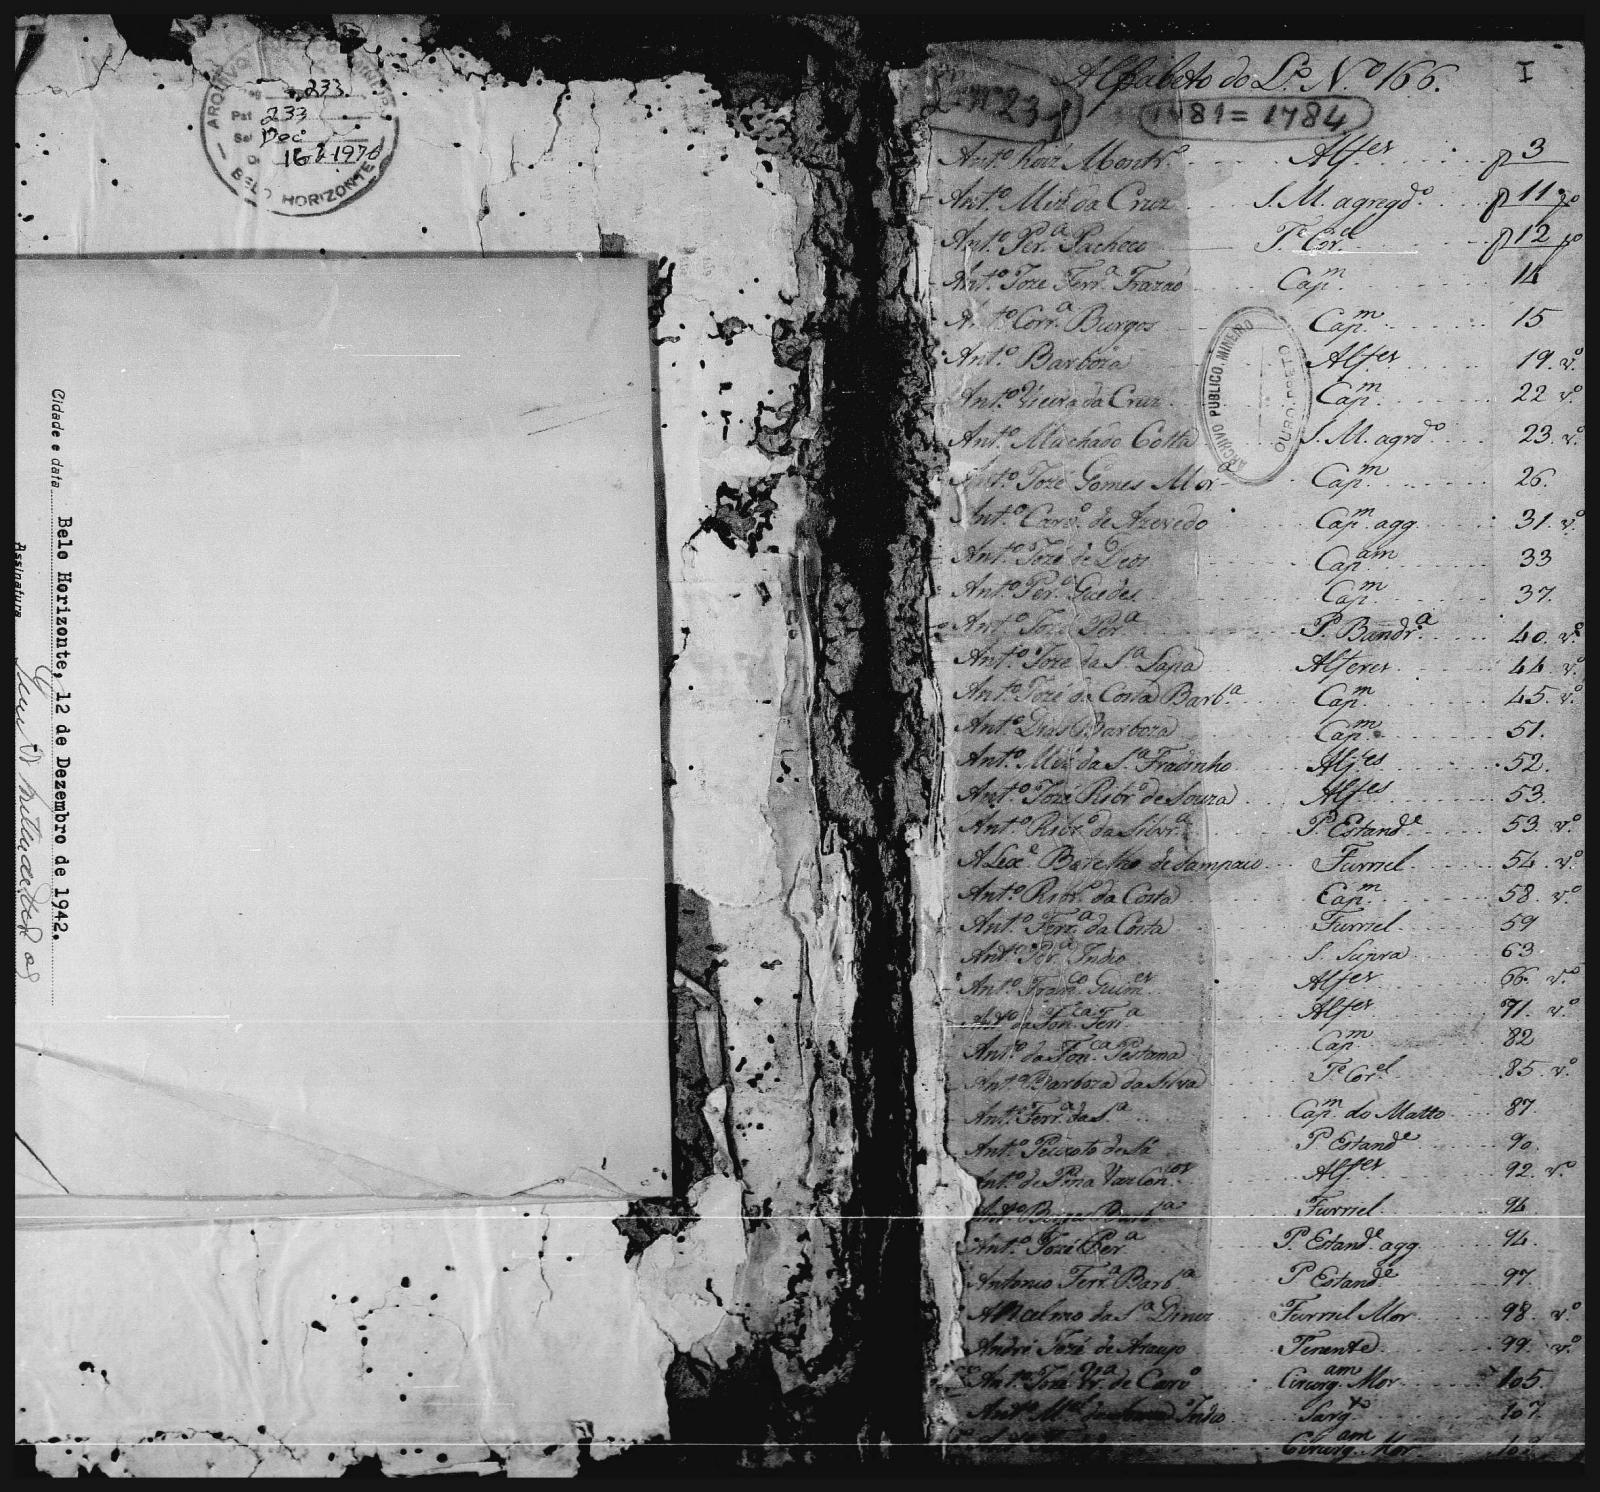 ARQUIVO
MINEIRO
233
Pat 233
Doc
16 1976
BELO HORIZONTE
Cidade e data Belo Horizonte, 12 de Dezembro de 1942.
Assinatura
Alfabeto do L.º N.º 166. I
23 1781 = 1784
Ant.º Roiz Montr.º Alfes f 3
Ant.º Miz da Cruz S. M. agregd.º f 11 vº
Ant.º Per.ª Pacheco T.e Cor.el f 12 vº
Ant.º Joze Ferr.ª Frazaõ Cap.m 14
Ant.º Corr.ª Burgos Cap.m 15
Ant.º Barboza Alfes 19. v.º
Ant.º Vieira da Cruz Cap.m 22 v.º
Ant.º Machado Cotta S. M. agrd.º 23. v.º
Ant.º Jozé Gomes Mor.ª Cap.m 26.
Ant.º Carv.º de Azevedo Cap.m agg. 31. v.º
Ant.º Jozé de Deos Cap.am 33
Ant.º Per.ª Guedes Cap.m 37.
Ant.º Jozé Per.ª P. Bandr.ª 40. v.º
Ant.º Joze da S.ª Lapa Alferes 44 v.º
Ant.º Jozé da Costa Barb.ª Cap.m 45. v.º
Ant.º Dias Barboza Cap.m 51.
Ant.º Miz da S.ª Fradinho Alfes 52.
Ant.º Jozé Ribr.º de Souza Alfes 53.
Ant.º Ribr.º da Silvr.ª P. Estand.e 53. v.º
Alex.e Botelho de Sampaio Furriel 54. v.º
Ant.º Ribr.º da Costa Cap.m 58. v.º
Ant.º Ferr.ª da Costa Furriel 59
Ant.º Per.ª Indio S. Supra 63
Ant.º Franc.º Guim.es Alfes 66. v.º
Ant.º da Fon.ca Ferr.ª Alfes 71. v.º
Ant.º da Fon.ca Pestana Cap.m 82
Ant.º Barboza da Silva T.e Cor.el 85. v.º
Ant.º Ferr.ª da S.ª Cap.m do Matto 87.
Ant.º Peixoto de Sá P Estand.e 90.
Ant.º de Pina Vasconc.os Alfes 92. v.º
Ant.º Borges Furriel 94
Ant.º Jozé Per.ª P. Estand.e agg. 94.
Antonio Ferr.ª Barb.ª P Estand.e 97.
Ancelmo da S.ª Diniz Furriel Mor 98. v.º
André Jozé de Araujo Tenente 99. v.º
Ant.º Jozé Vr.ª de Carv.º Cirurg.am Mor 105.
Ant.º M.el Indio Sarg.to 107
Cirurg.am Mor
ARCHIVO PUBLICO MINEIRO
OURO PRETO